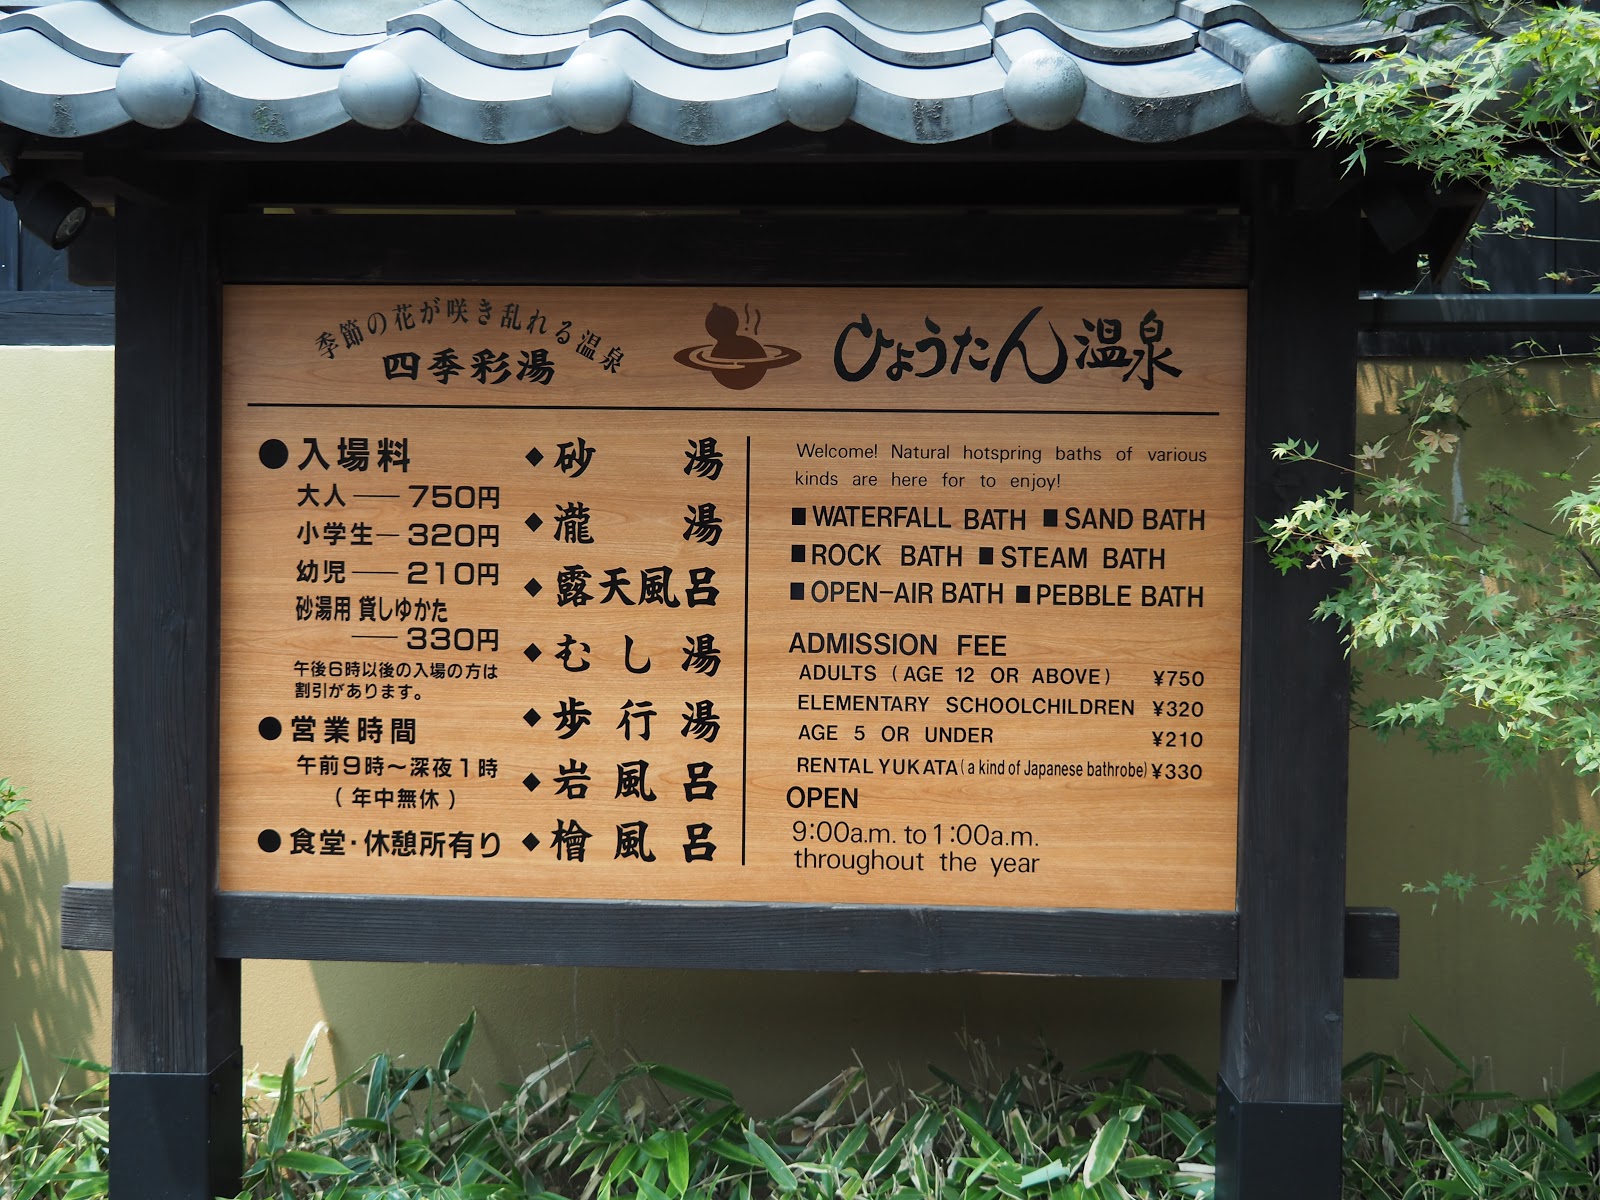 季節の花が咲き乱れる温泉
四季彩湯
ひょうたん温泉
●入場料
大人――750円
小学生―320円
幼児――210円
砂湯用 貸しゆかた
――330円
午後6時以後の入場の方は
割引があります。
●営業時間
午前9時〜深夜1時
(年中無休)
●食堂・休憩所有り
◆砂湯
◆瀧湯
◆露天風呂
◆むし湯
◆歩行湯
◆岩風呂
◆檜風呂
Welcome! Natural hotspring baths of various
kinds are here for to enjoy!
■WATERFALL BATH ■SAND BATH
■ROCK BATH ■STEAM BATH
■OPEN-AIR BATH ■PEBBLE BATH
ADMISSION FEE
ADULTS (AGE 12 OR ABOVE) ¥750
ELEMENTARY SCHOOLCHILDREN ¥320
AGE 5 OR UNDER ¥210
RENTAL YUKATA (a kind of Japanese bathrobe) ¥330
OPEN
9:00a.m. to 1:00a.m.
throughout the year